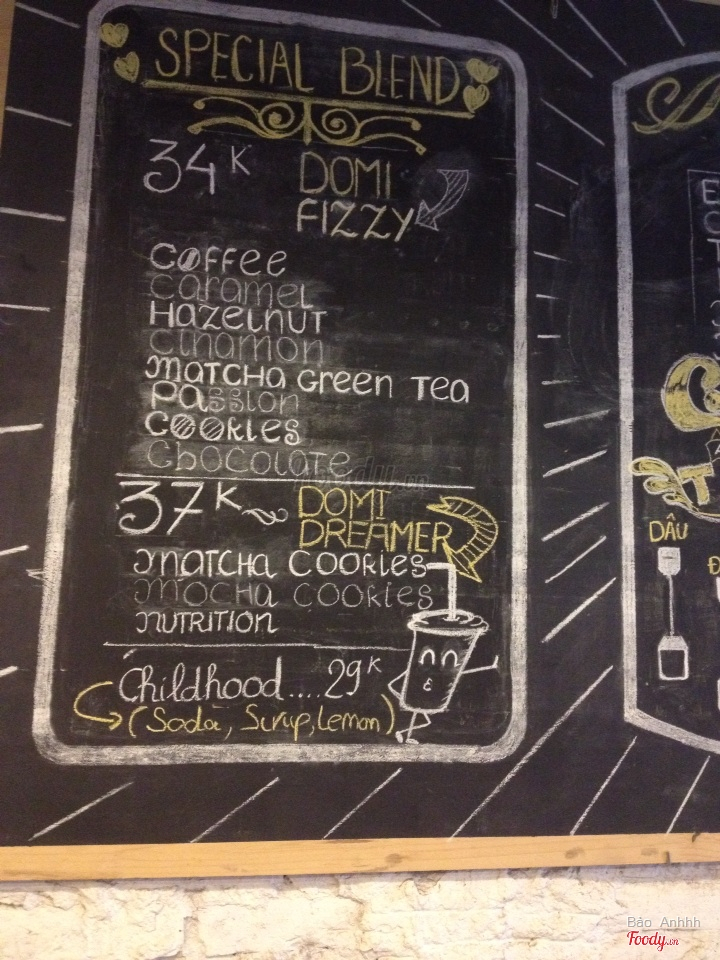 SPECIAL BLEND
34K DOMI FIZZY
Coffee
Caramel
Hazelnut
Cinamon
Matcha Green Tea
Passion
Cookies
Chocolate
37K DOMI DREAMER
Matcha Cookies
Mocha Cookies
Nutrition
Childhood....29K
(Soda, Sirup, Lemon)
DÂU
Bảo Anhhh
Foody.vn